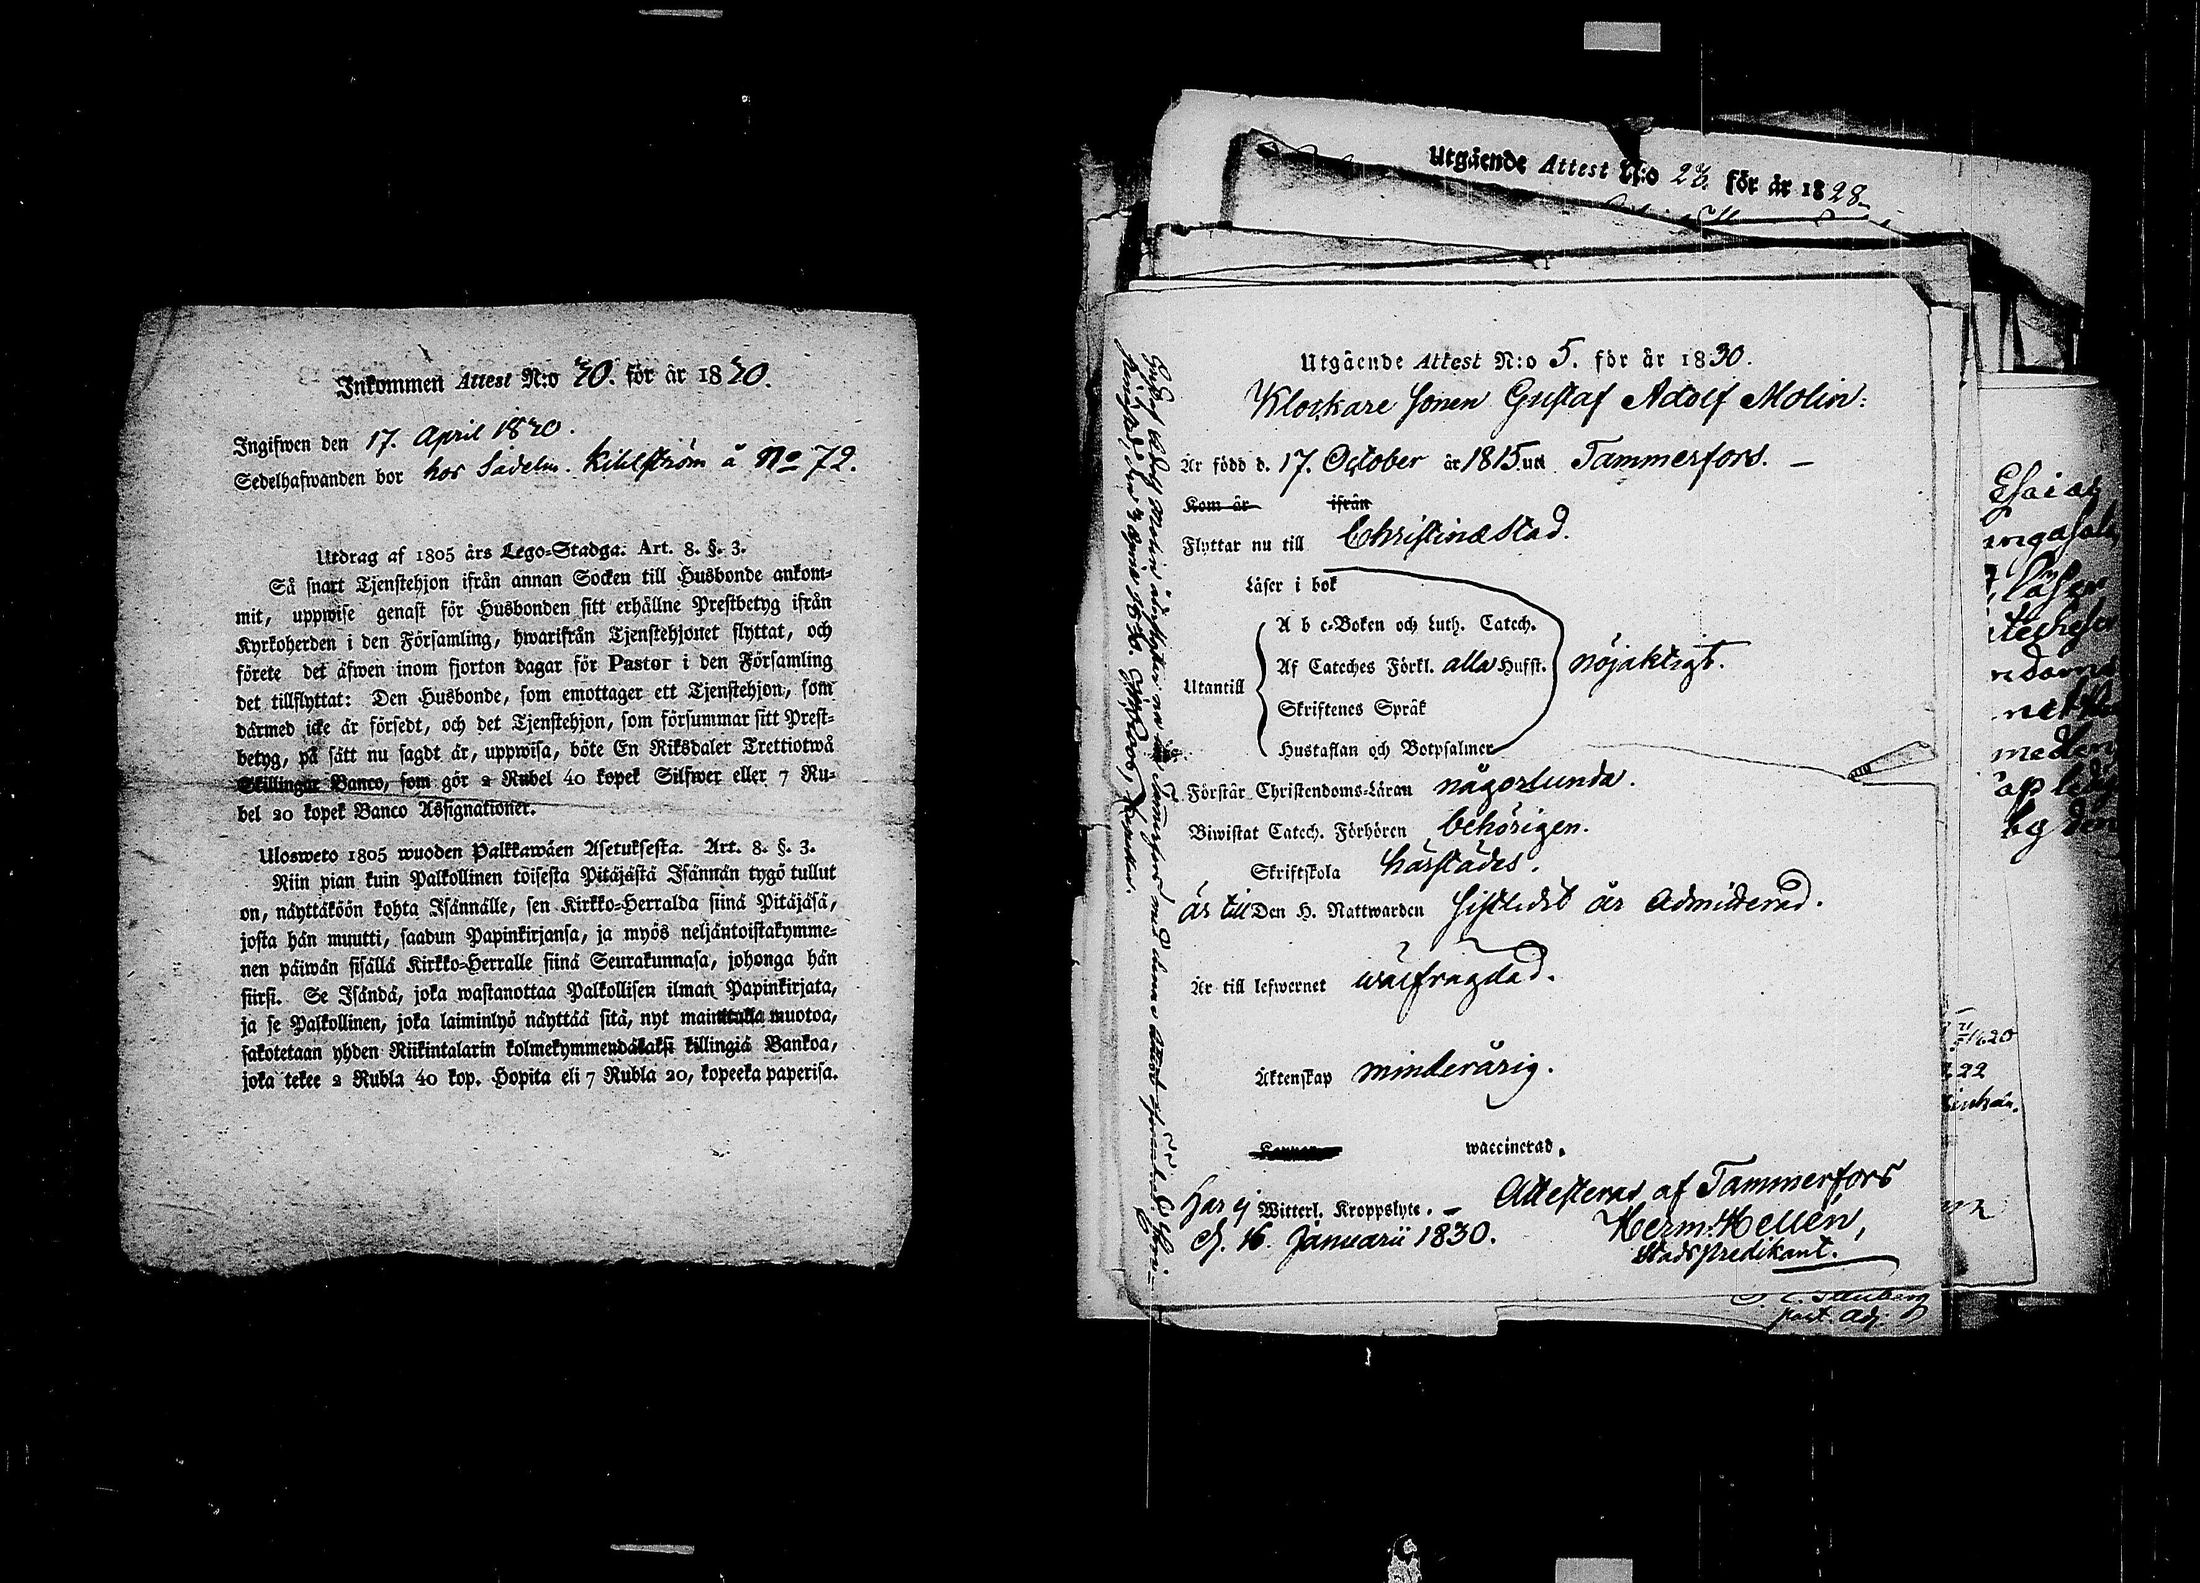 Inkommen Attest N:o 20. för år 1820.
Ingifwen den 17. April 1820.
Sedelhafwanden bor hos Sadelm. Kihlström å No 72.
Utdrag af 1805 års Lego-Stadga. Art. 8. §. 3.
Så snart Tjenstehjon ifrån annan Socken till Husbonde ankom-
mit, uppwise genast för Husbonden sitt erhållne Prestbetyg ifrån
Kyrkoherden i den Församling, hwarifrån Tjenstehjonet flyttat, och
förete det äfwen inom fjorton dagar för Pastor i den Församling
det tillflyttat: Den Husbonde, som emottager ett Tjenstehjon, som
därmed icke är försedt, och det Tjenstehjon, som försummar sitt Prest-
betyg, på sätt nu sagdt är, uppwisa, böte En Riksdaler Trettiotwå
Skillingar Banco, som gör 2 Rubel 40 kopek Silfwer eller 7 Ru-
bel 20 kopek Banco Assignationer.
Ulosweto 1805 wuoden Palkkawäen Asetuksesta. Art. 8. §. 3.
Niin pian kuin Palkollinen toisesta Pitäjästä Isännän tygö tullut
on, näyttäköön kohta Isännälle, sen Kirkko-Herralda siinä Pitäjäsä,
josta hän muutti, saadun Papinkirjansa, ja myös neljäntoistakymme-
nen päiwän sisällä Kirkko-Herralle siinä Seurakunnasa, johonga hän
siirsi. Se Isändä, joka wastanottaa Palkollisen ilman Papinkirjata,
ja se Palkollinen, joka laiminlyö näyttää sitä, nyt mainitulla muotoa,
sakotetaan yhden Riikintalarin kolmekymmendäkaksi killingiä Bankoa,
joka tekee 2 Rubla 40 kop. Hopita eli 7 Rubla 20, kopeeka paperisa.
Utgående Attest N:o 23. för år 1828.
Utgående Attest N:o 5. för år 1830.
Klockare Sonen Gustaf Adolf Molin:
Är född d. 17. October år 1815 uti Tammerfors. —
Kom år ifrån
Flyttar nu till Christinæstad.
Läser i bok
A b c-Boken och Luth. Catech.
Af Cateches Förkl. alla Hufst. nöjaktigt.
Utantill
Skriftenes Språk
Hustaflan och Botpsalmer
Förstår Christendoms-Läran någorlunda.
Biwistat Catech. Förhören behörigen.
Skriftskola härstädes.
är till Den H. Nattwarden sistledit år admitterad.
Är till lefwernet wälfrägdad.
Äktenskap minderårig.
waccinerad.
Har ej Witterl. Kroppslyte. — Attesteras af Tammerfors
d. 16. Januarii 1830. Herm: Hellén,
Stadspredikant.
Gustaf Adolf Molin
Tammerfors med denna
past. adj.
Esaias